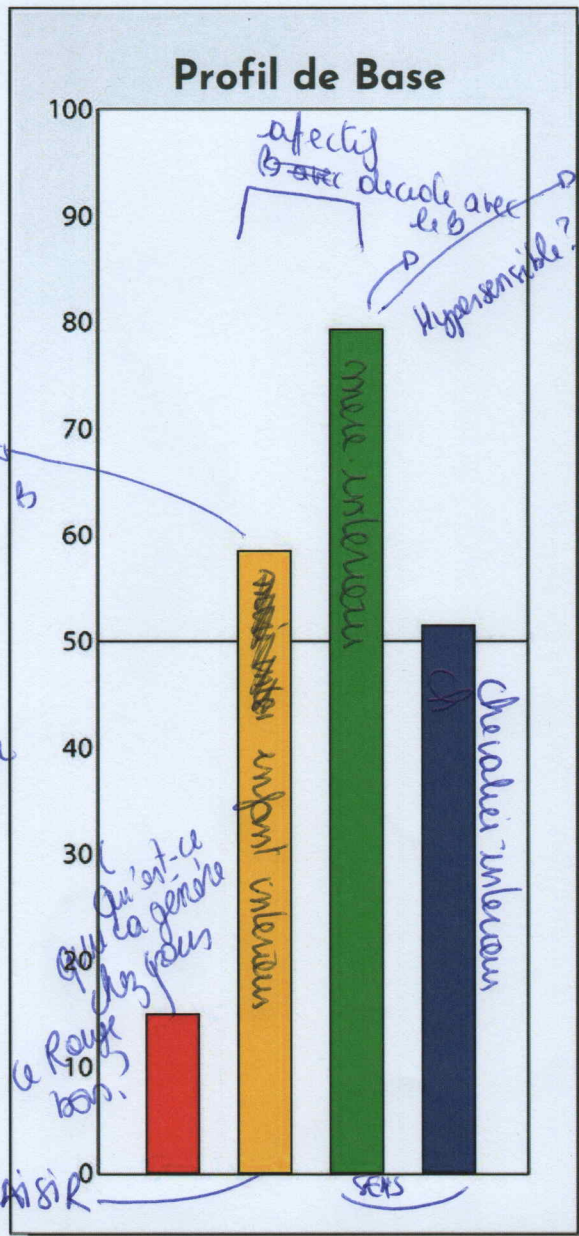 Profil de Base
100
90
80
70
60
50
40
30
20
10
0
afectif
B avec decide avec
le B
Hypersensible?
B
mere interieur
enfant interieur
Chevalier interieur
Qu'est-ce
que ca génère
chez vous
ce Rouge
bas?
AISIR
SENS